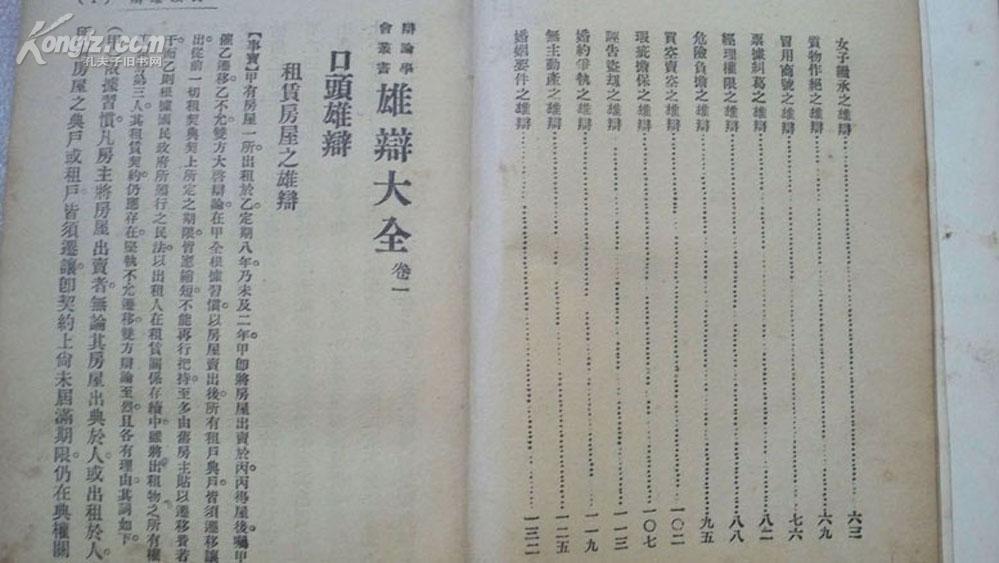 女子繼承之雄辯 六三
質物作絕之雄辯 六九
冒用商號之雄辯 七六
票據糾葛之雄辯 八二
經理權限之雄辯 八八
危險負擔之雄辯 九五
買空賣空之雄辯 一〇二
瑕疵擔保之雄辯 一〇七
誣告盜竊之雄辯 一一三
婚約爭執之雄辯 一一九
無主動產之雄辯 一二五
婚姻要件之雄辯 一三二
辯論學會叢書 雄辯大全 卷一
口頭雄辯
租賃房屋之雄辯
【事實】甲有房屋一所出租於乙定期八年乃未及二年甲即將房屋出賣於丙丙得屋後囑甲
催乙遷移乙不允雙方大啓辯論在甲全根據習慣以房屋賣出後所有租戶典戶皆須遷移讓
出從前一切租契典契上所定之期限皆應縮短不能再行把持至多由舊房主貼以遷移費若
干而乙則根據國民政府所頒行之民法以出租人在租賃關係存續中雖將出租物之所有權
第三人其租賃契約仍應存在堅執不允遷移雙方辯論至烈且各有理由其詞如下
根據習慣凡房主將房屋出賣者無論其房屋出典於人或出租於人
房屋之典戶或租戶皆須遷讓卽契約上尙未屆滿期限仍在典權關
Kongfz.com
孔夫子旧书网